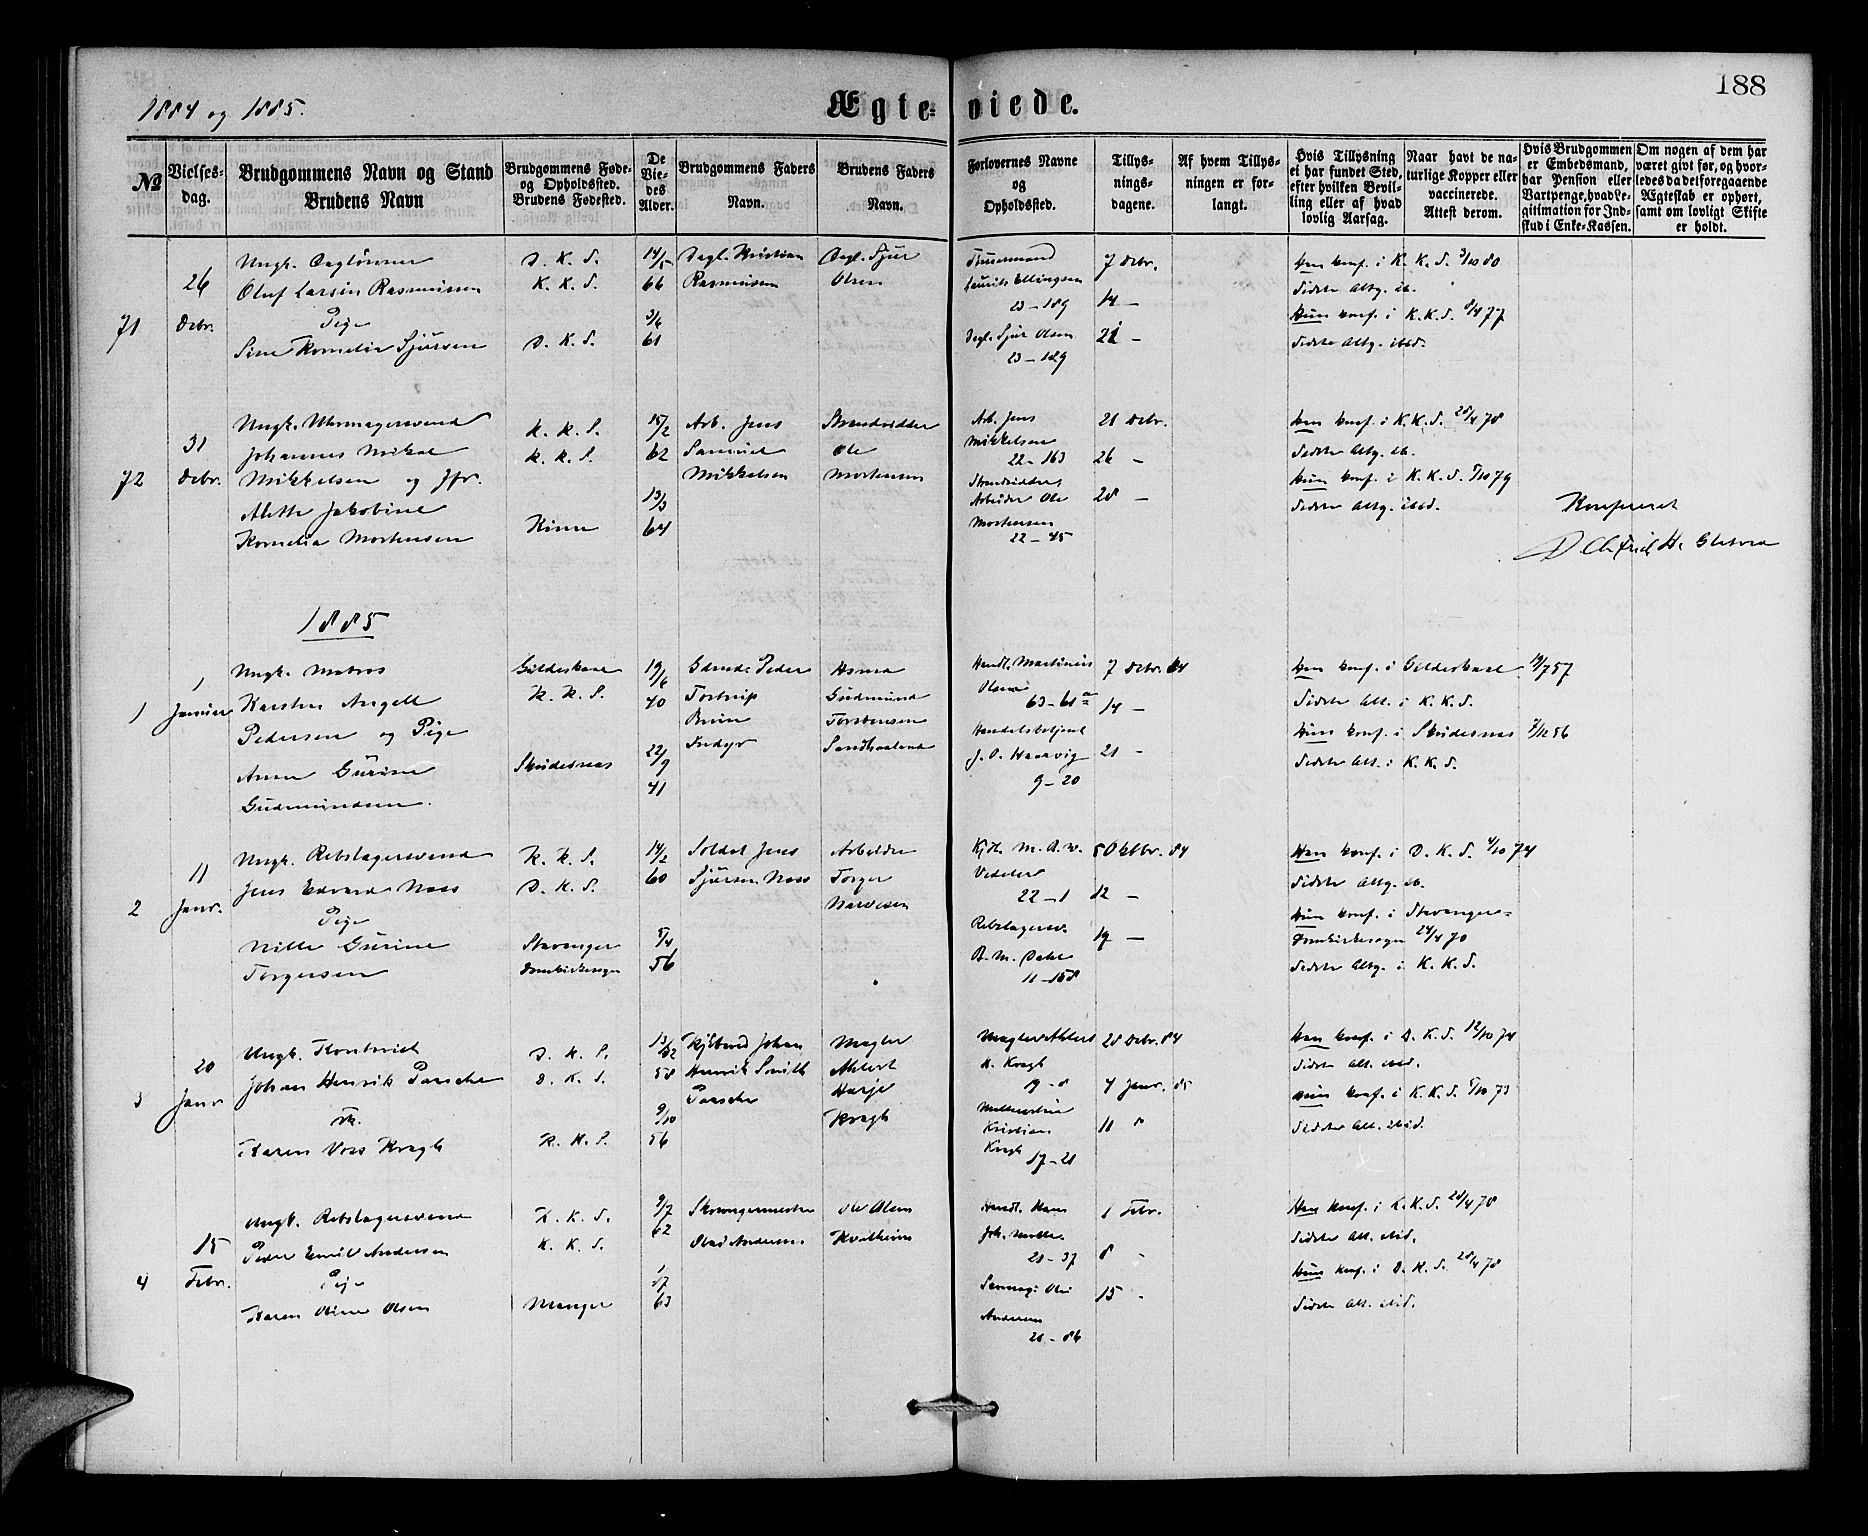 188
1884 og 1885.
Ægte-viede.
No
Vielses-dag.
Brudgommens Navn og Stand
Brudens Navn
Brudgommens Føde- og Opholdssted.
Brudens Fødested.
De Viedes Alder.
Brudgommens Faders Navn.
Brudens Faders Navn.
Forlovernes Navne og Opholdssted.
Tillysningsdagene.
Af hvem Tillysningen er forlangt.
Hvis Tillysning ei har fundet Sted, efter hvilken Bevilling eller af hvad lovlig Aarsag.
Naar havt de naturlige Kopper eller vaccinerede. Attest derom.
Hvis Brudgommen er Embedsmand, har Pension eller Vartpenge, hvad Legitimation for Indskud i Enke-Kassen.
Om nogen af dem har været givt før, og hvorledes da det foregaaende Ægteskab er ophørt, samt om lovligt Skifte er holdt.
71
26 Debr.
Ungk. Dagl&oslash;nner
Oluf Larsen Rasmussen
Pige
Sine Kornelia Sjursen
D. K. S.
K. K. S.
D. K. S.
14/5 66
3/6 61
Dagl. Kristian
Rasmussen
Dagl. Sjur
Olsen
Tømmermand
Laurits Ellingsen
23-189
Dagl. Sjur Olsen
23-129
7 Debr.
14 —
21 —
Han konf. i K. K. S. 3/10 80
Sidste Altg. ib.
Hun konf. i K. K. S. 8/4 77
Sidste Altg. ibid.
72
31 Debr.
Ungk. Uhrmagersvend
Johannes Mikal
Mikkelsen og Jfr.
Alette Jakobine
Kornelia Mortensen
K. K. S.
K. K. S.
Kinn
15/2 62
13/3 64
Arb. Jens
Samuel
Mikkelsen
Strandsidder
Ole
Mortensen
Arb. Jens
Mikkelsen
22-163
Strandsidder
Arbeider Ole
Mortensen
22-45
21 Debr.
26 —
28 —
Han konf. i K. K. S. 28/4 78
Sidste Altg. ib.
Hun konf. i K. K. S. 5/10 79
Sidste Altg. ibid.
Konfereret
1885
1
1 Januar
Ungk. Matros
Karsten Angell
Pedersen og Pige
Anna Gurine
Gudmundsen.
Gildeskaal
K. K. S.
Skudesnæs
19/6 40
22/9 41
Gdmd. Peder
Tostrup
Brun
Indyr
Gudmund
Torstensen
Sandhaaland
Handl. Martinius
Olsen
63-61a
Handelsbetjent
J. O. Haarvig
9-20
7 Debr. 84
14 —
21 —
Han konf. i Gildeskaal 19/7 57
Sidste Alt. i K. K. S.
Hun konf. i Skudesnæs 7/12 56
Sidste Alt. i K. K. S.
2
11 Janr.
Ungk. Rebslagersvend
Jens Edvard Næss
Pige
Nille Gurine
Torgersen
K. K. S.
D. K. S.
Stavanger
Domkirkesogn
14/2 60
5/4 56
Soldat Jens
Sjursen Næss
Arbeider
Torger
Narvesen
Kjbm. M. A. W.
Vedeler
22-1
Rebslagersv.
11-158
5 Oktbr. 84
12 —
19 —
Han konf. i D. K. S. 4/10 74
Sidste Altg. ib.
Hun konf. i Stavanger-
Domkirkesogn 24/4 70
Sidste Altg. i K. K. S.
3
20 Janr
Ungk. Kontorist
Johan Henrik Paasche
Fk.
Karen Voss Kragh
D. K. S.
D. K. S.
K. K. S.
13/12 58
9/10 56
Johan
Henrik Smith
Paasche
Mægler
Ahlert
Harje
Kragh
Mægler Ahlert
H. Kragh
19-8
Kristian
Kragh
17-21
28 Debr. 84
4 Janr. 85
11 "
Han konf. i D. K. S. 12/10 74
Sidste Alt. ibid.
Hun konf. i K. K. S. 5/10 73
Sidste Alt. ibid.
4
15 Febr.
Ungk. Rebslagersvend
Peder Emil Andersen
Pige
Karen Oline Olsen
K. K. S.
K. K. S.
Manger
9/7 62
1/7 63
Olai Andersen
Ole Olsen
Kvalheim
Handl. Hans
Joh. Molle
21-37
Ole
Andersen
21-86
1 Febr.
8 -
15 -
Han konf. i K. K. S. 28/4 78
Sidste Alt. ibid.
Hun konf. i D. K. S. 28/4 78
Sidste Alt. ibid.